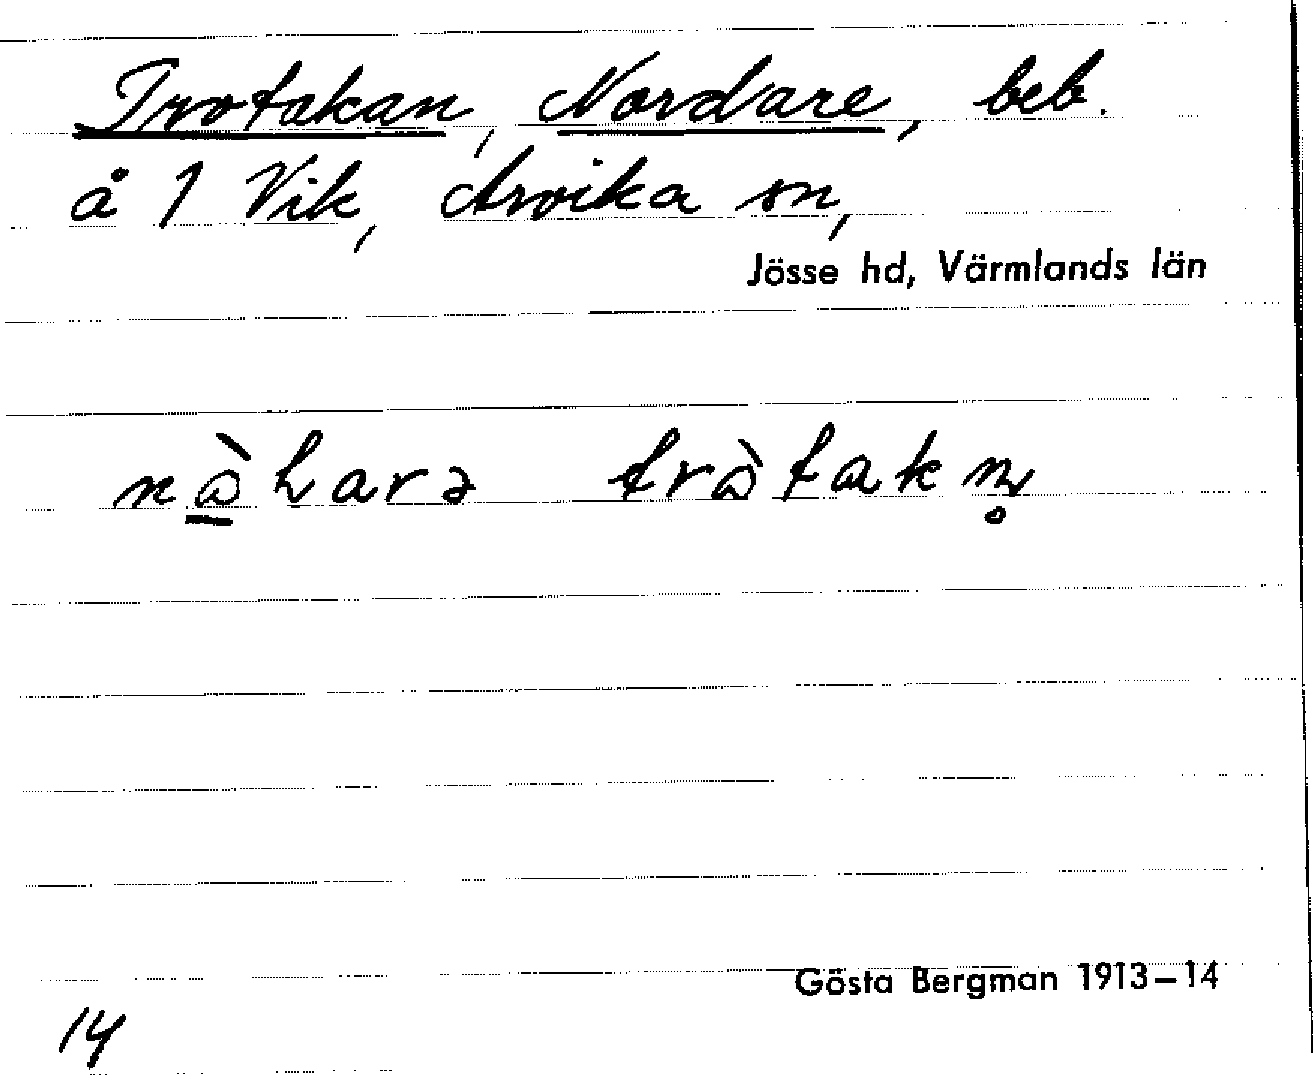 Trotakan, Nordare, beb.
å 1 Vik, Arvika sn,
Jösse hd, Värmlands län
Gösta Bergman 1913–14
14